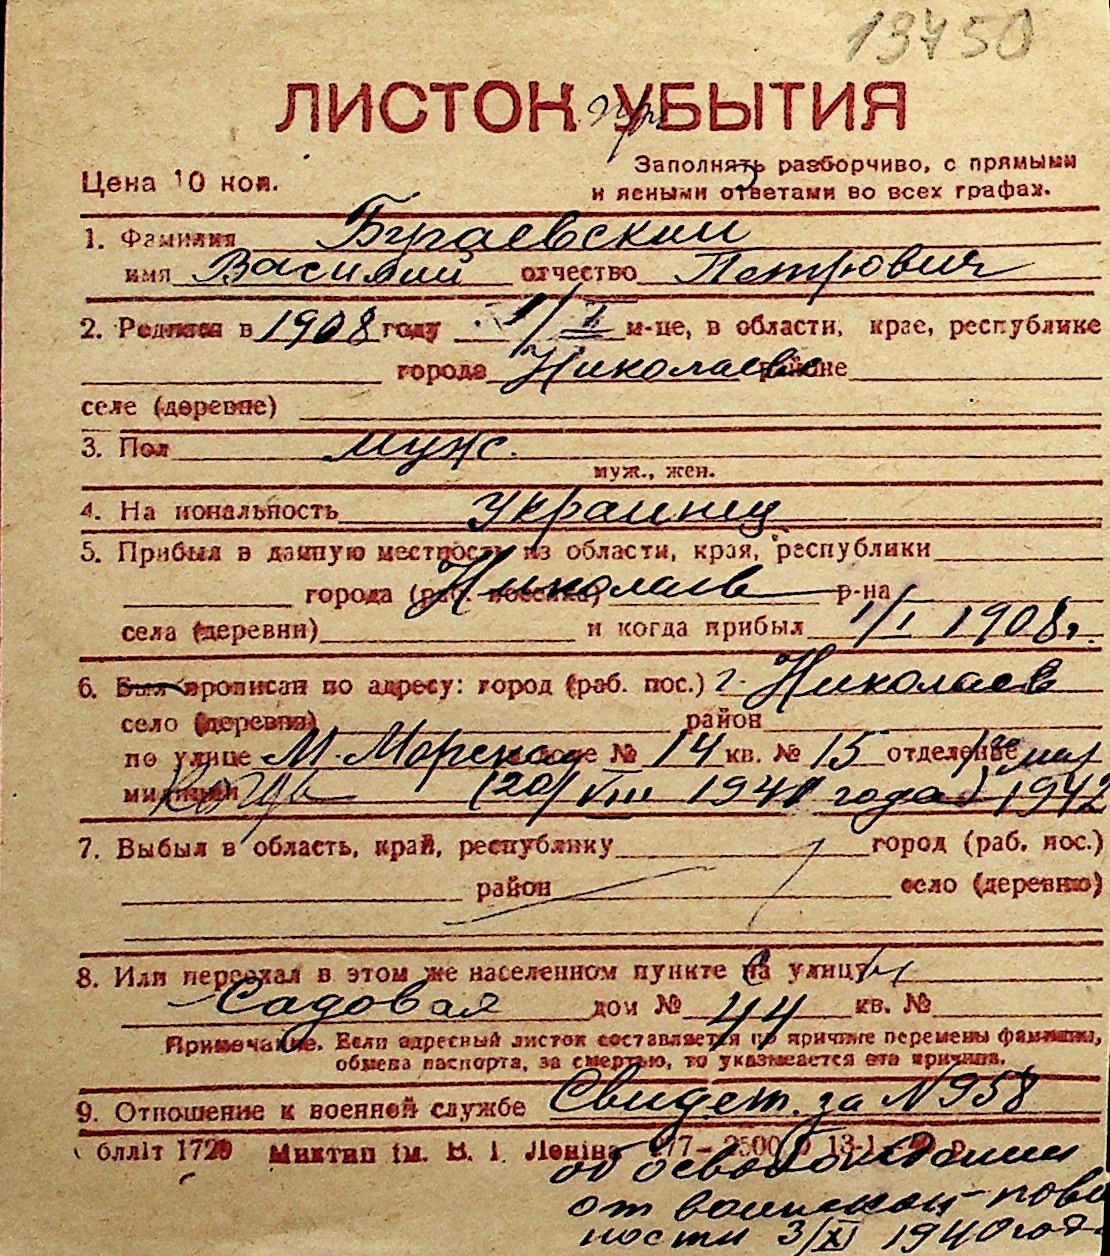 13450
ЛИСТОК УБЫТИЯ
При
Цена 10 коп.
Заполнять разборчиво, с прямыми
и ясными ответами во всех графах.
1. Фамилия Бугаевский
имя Василий отчество Петрович
2. Родился в 1908 году 1/I м-це, в области, крае, республике
города Николаеве районе
селе (деревне)
3. Пол муж.
муж., жен.
4. Национальность украинец
5. Прибыл в данную местность из области, края, республики
города (раб. поселка) Николаев р-на
села (деревни) и когда прибыл 1/I 1908 г.
6. Был прописан по адресу: город (раб. пос.) г. Николаев
село (деревня) район
по улице М. Морская доме № 14 кв. № 15 отделение
милиции (20/VIII 1941 года) 1942
7. Выбыл в область, край, республику город (раб. пос.)
район село (деревню)
8. Или переехал в этом же населенном пункте на улицу
Садовая дом № 44 кв. №
Примечание. Если адресный листок составляется по причине перемены фамилии,
обмена паспорта, за смертью, то указывается эта причина.
9. Отношение к военной службе Свидет. за N 958
об освобождении
от воинской пови
ности 3/XI 1940 год
бллiт 1720 Миктип iм. В. I. Ленiна